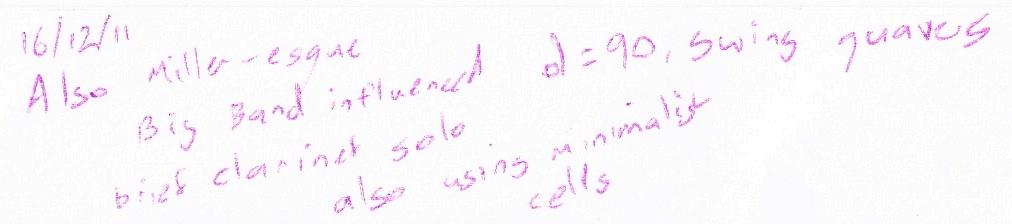 16/12/11
Also Miller-esque
Big Band influenced d=90, swing quavers
brief clarinet solo
also using minimalist
cells